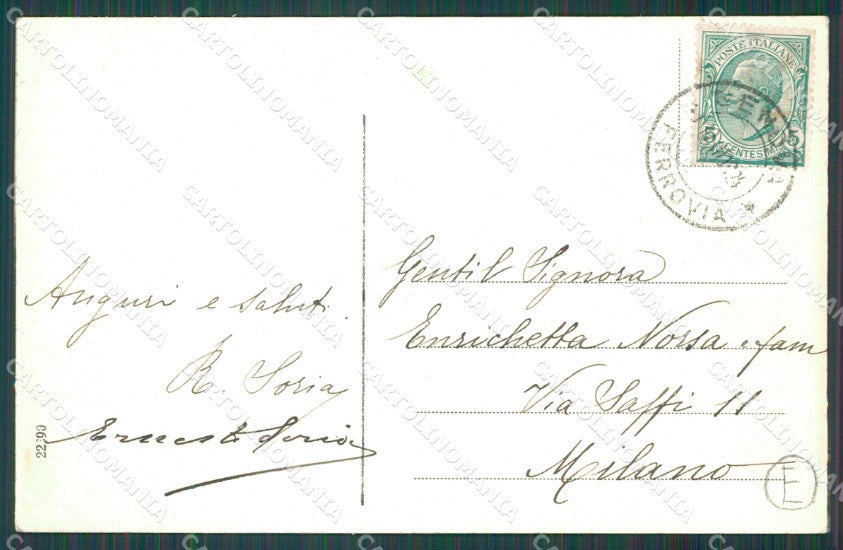 POSTE ITALIANE
5 CENTESIMI 5
GENOVA
FERROVIA
Auguri e saluti
R. Soria
Ernesto Soria
22299
Gentil Signora
Enrichetta Norsa e fam
Via Saffi 11
Milano
E
CARTOLINOMANIA